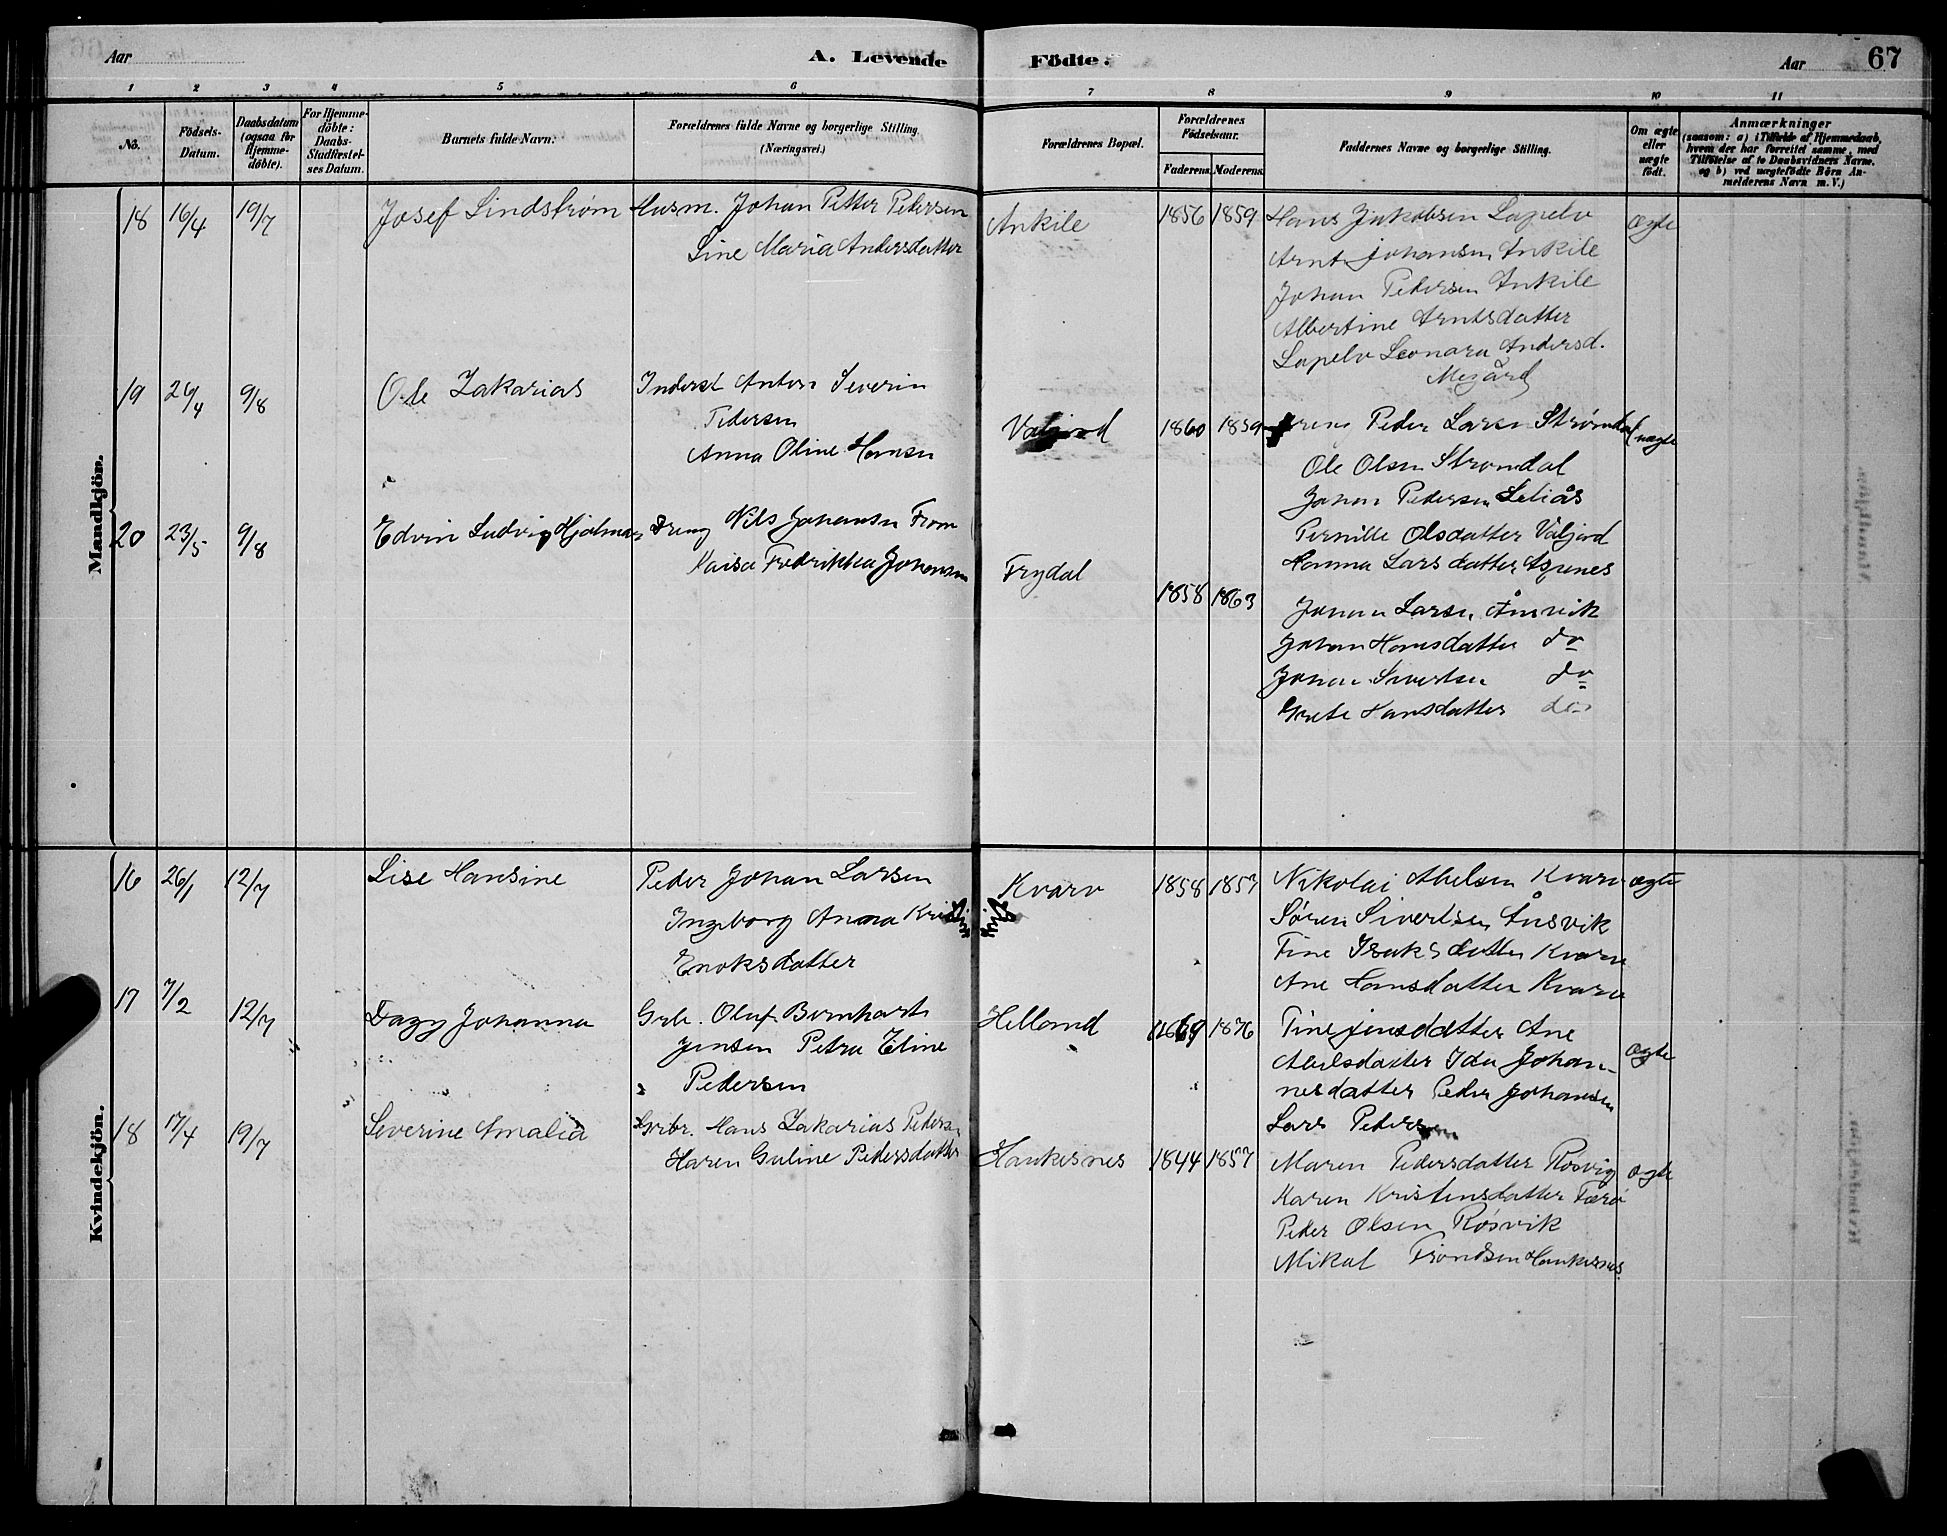 Aar
A. Levende
Födte.
Aar
67
1 2 3 4 5 6 7 8 9 10 11
No.
Födsels-
Datum.
Daabsdatum
(ogsaa for
Hjemme-
döbte).
For Hjemme-
döbte:
Daabs-
Stadfæstel-
ses Datum.
Barnets fulde Navn.
Forældrenes fulde Navne og borgerlige Stilling.
(Næringsvei.)
Forældrenes Bopæl.
Forældrenes
Födselsaar.
Faderens.
Moderens.
Faddernes Navne og borgerlige Stilling.
Om ægte
eller
uægte
födt.
Anmærkninger
(saasom: a) i Tilfælde af Hjemmedaab,
hvem der har forrettet samme, med
Tilföielse af to Daabsvidners Navne.
og b) ved uægtefödte Börn An-
melderens Navn m. V.)
Mandkjön.
18 16/4 19/7 Josef Lindstrøm Husm. Johan Petter Petersen
Line Maria Andersdatter
Ankile 1856 1859 Hans Jakobsen Lapelv ægte
Arnt Johansen Ankile
Johan Pedersen Ankile
Albertine Arntsdatter
Lapelv Leonara Andersd.
Megård
19 24/4 9/8 Ole Zakarias Inderst Anton Severin
Pedersen
Anna Oline Hansen
Valjord 1860 1859 Dreng Peder Larsen Strømdal uægte
Ole Olsen Strømdal
Johan Pedersen Leliås
Pernille Olsdatter Valjord
Hanna Larsdatter Aspenes
20 23/5 9/8 Edvin Ludvig Hjalmar Dreng Nils Johansen From
Kaisa Fredrikka Johansen
Trydal 1858 1863 Johan Larsen Ånsvik
Johan Hansdatter do
Johan Sivertsen do
Grete Hansdatter do
Kvindekjön.
16 26/1 12/7 Lise Hansine Peder Johan Larsen
Ingeborg Anna Kristin
Enoksdatter
Kvarv 1858 1857 Nikolai Abelsen Kvarv ægte
Søren Sivertsen Ånsvik
Tine Isaksdatter Kvarv
Ane Hansdatter Kvarv
17 7/2 12/7 Dagy Johanna Grb. Oluf Bernhart
Jensen Petra Eline
Pedersen
Helland 1869 1876 Tine Jensdatter Ane
Abelsdatter Ida Johan-
nesdatter Peder Johansen
Lars Pedersen
ægte
18 17/4 19/7 Severine Amalia Grbr. Hans Zakarias Pedersen
Maren Guline Pedersdatter
Hankesnes 1844 1857 Maren Pedersdatter Røsvig ægte
Karen Kristensdatter Færø
Peder Olsen Røsvik
Mikal Trondsen Hankesnes